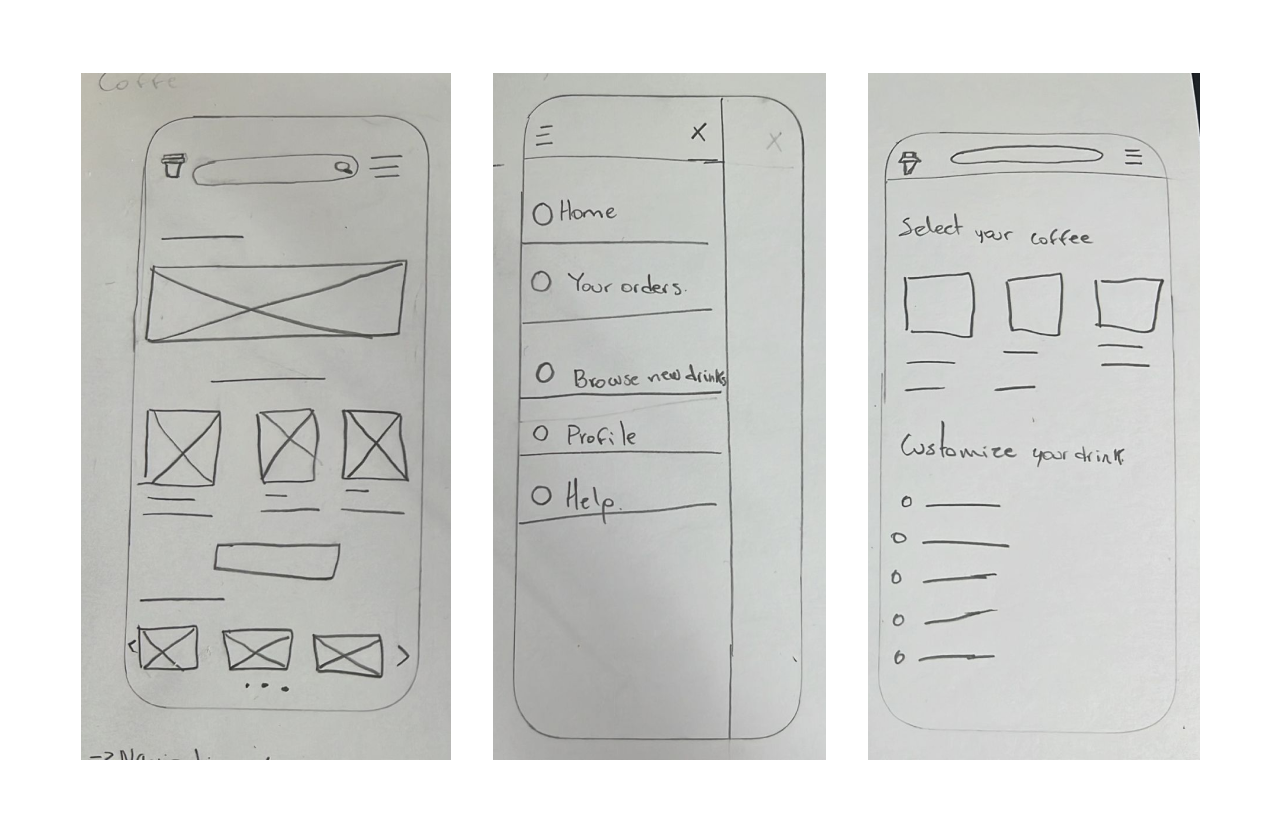 Coffe
X
X
Home
Your orders.
Browse new drinks
Profile
Help.
Select your coffee
Customize your drink.